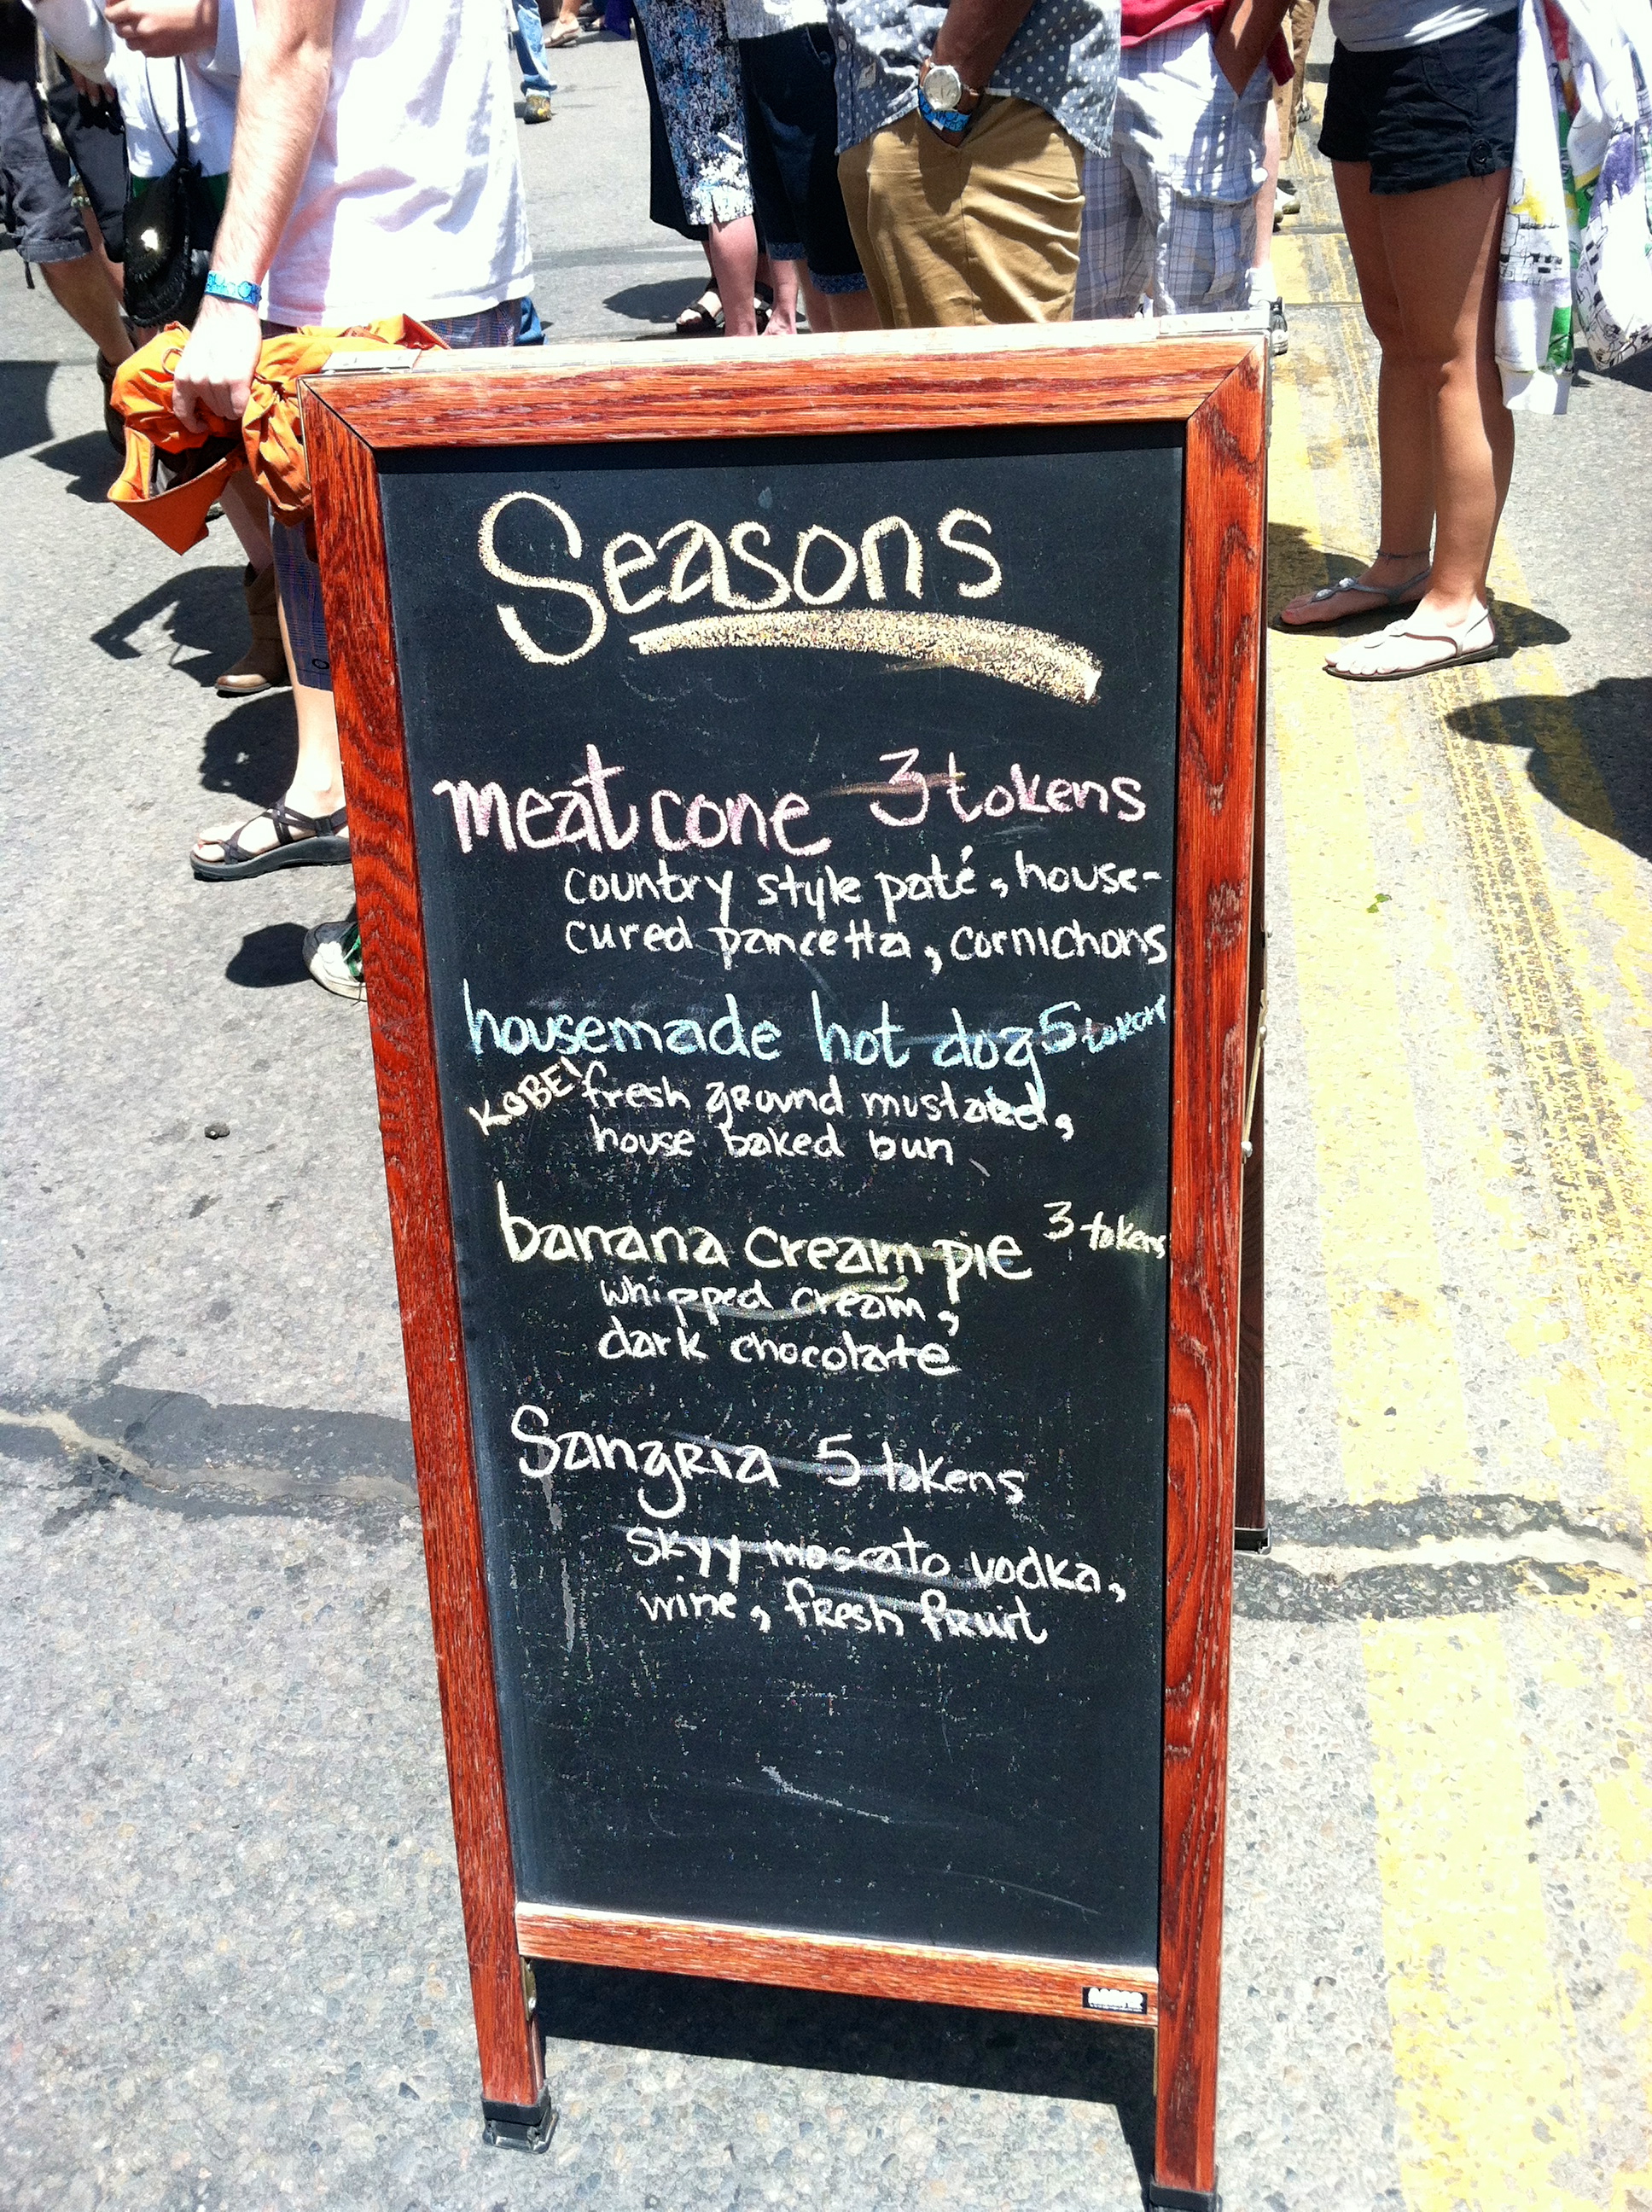 Seasons
meat cone 3 tokens
country style paté, house-
cured pancetta, cornichons
housemade hot dog 5 token
KOBE! fresh ground mustard,
house baked bun
banana cream pie 3 tokens
whipped cream,
dark chocolate
Sangria 5 tokens
Skyy moscato vodka,
wine, fresh fruit